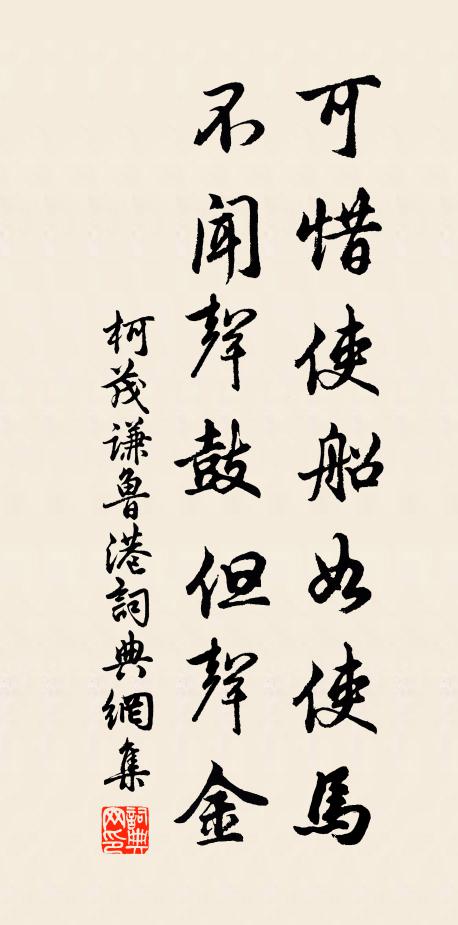 可惜使船如使馬
不聞聲鼓但聲金
柯茂謙魯港詞典網集
詞典网印